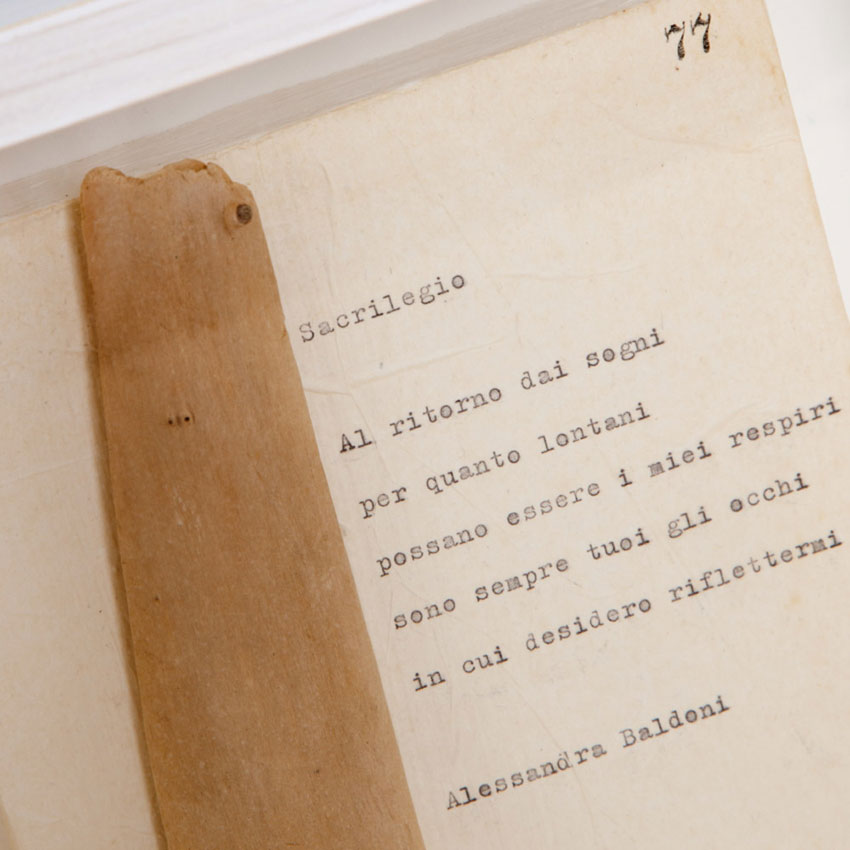 77
Sacrilegio
Al ritorno dai sogni
per quanto lontani
possano essere i miei respiri
sono sempre tuoi gli occhi
in cui desidero riflettermi
Alessandra Baldoni